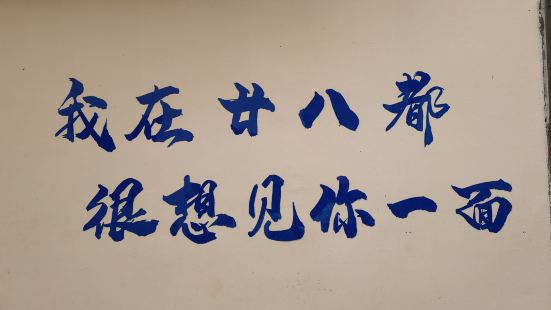 我在廿八都
很想见你一面